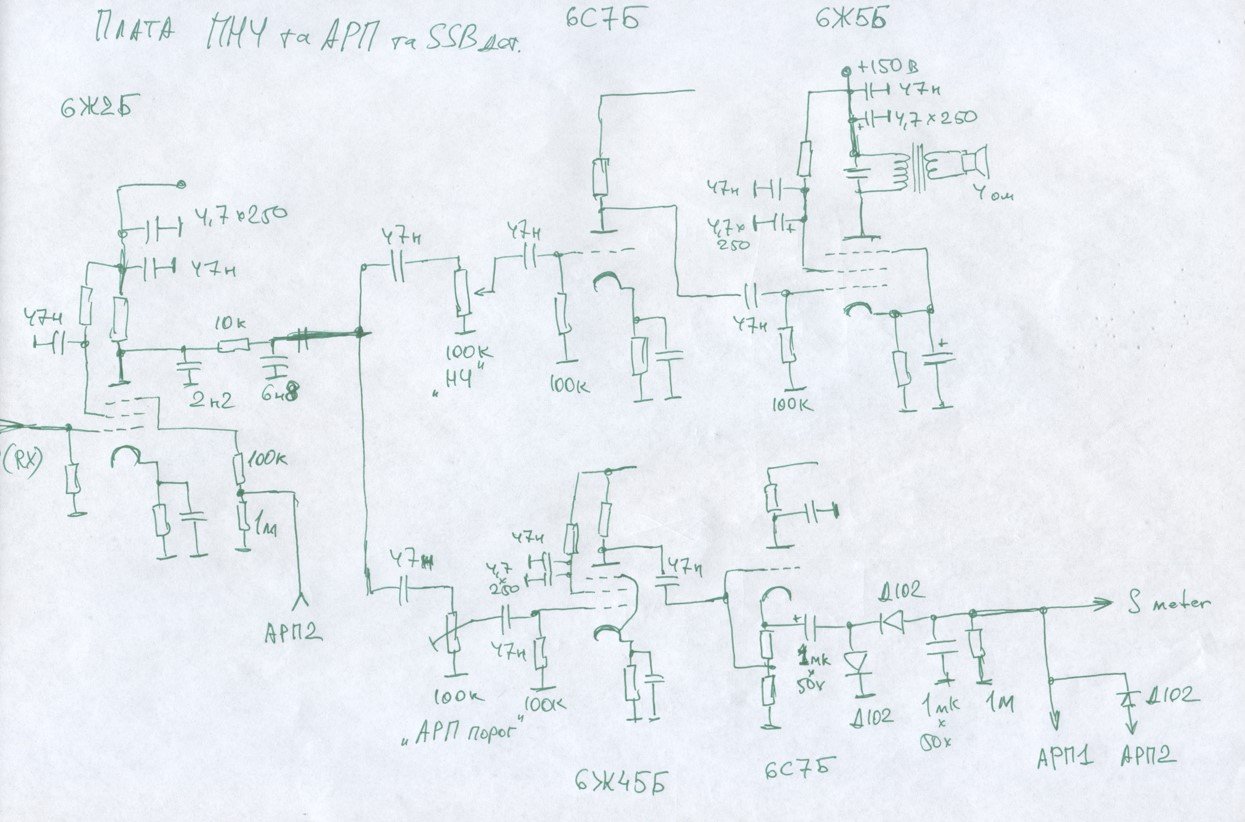 ПЛАТА ПНЧ та АРП та SSB дет.
6С7Б
6Ж5Б
6Ж2Б
+150В
47н
4,7×250
4 ом
47н
4,7×
250
4,7×250
47н
47н
47н
47н
10к
2н2
6н8
100к
"НЧ"
100к
47н
100к
(RX)
100к
1м
АРП2
47н
47н
4,7
×
250
47н
47н
100к
100к
"АРП порог"
6Ж45Б
6С7Б
1мк
×
50v
Д102
Д102
1мк
×
50v
1М
S meter
Д102
АРП1
АРП2